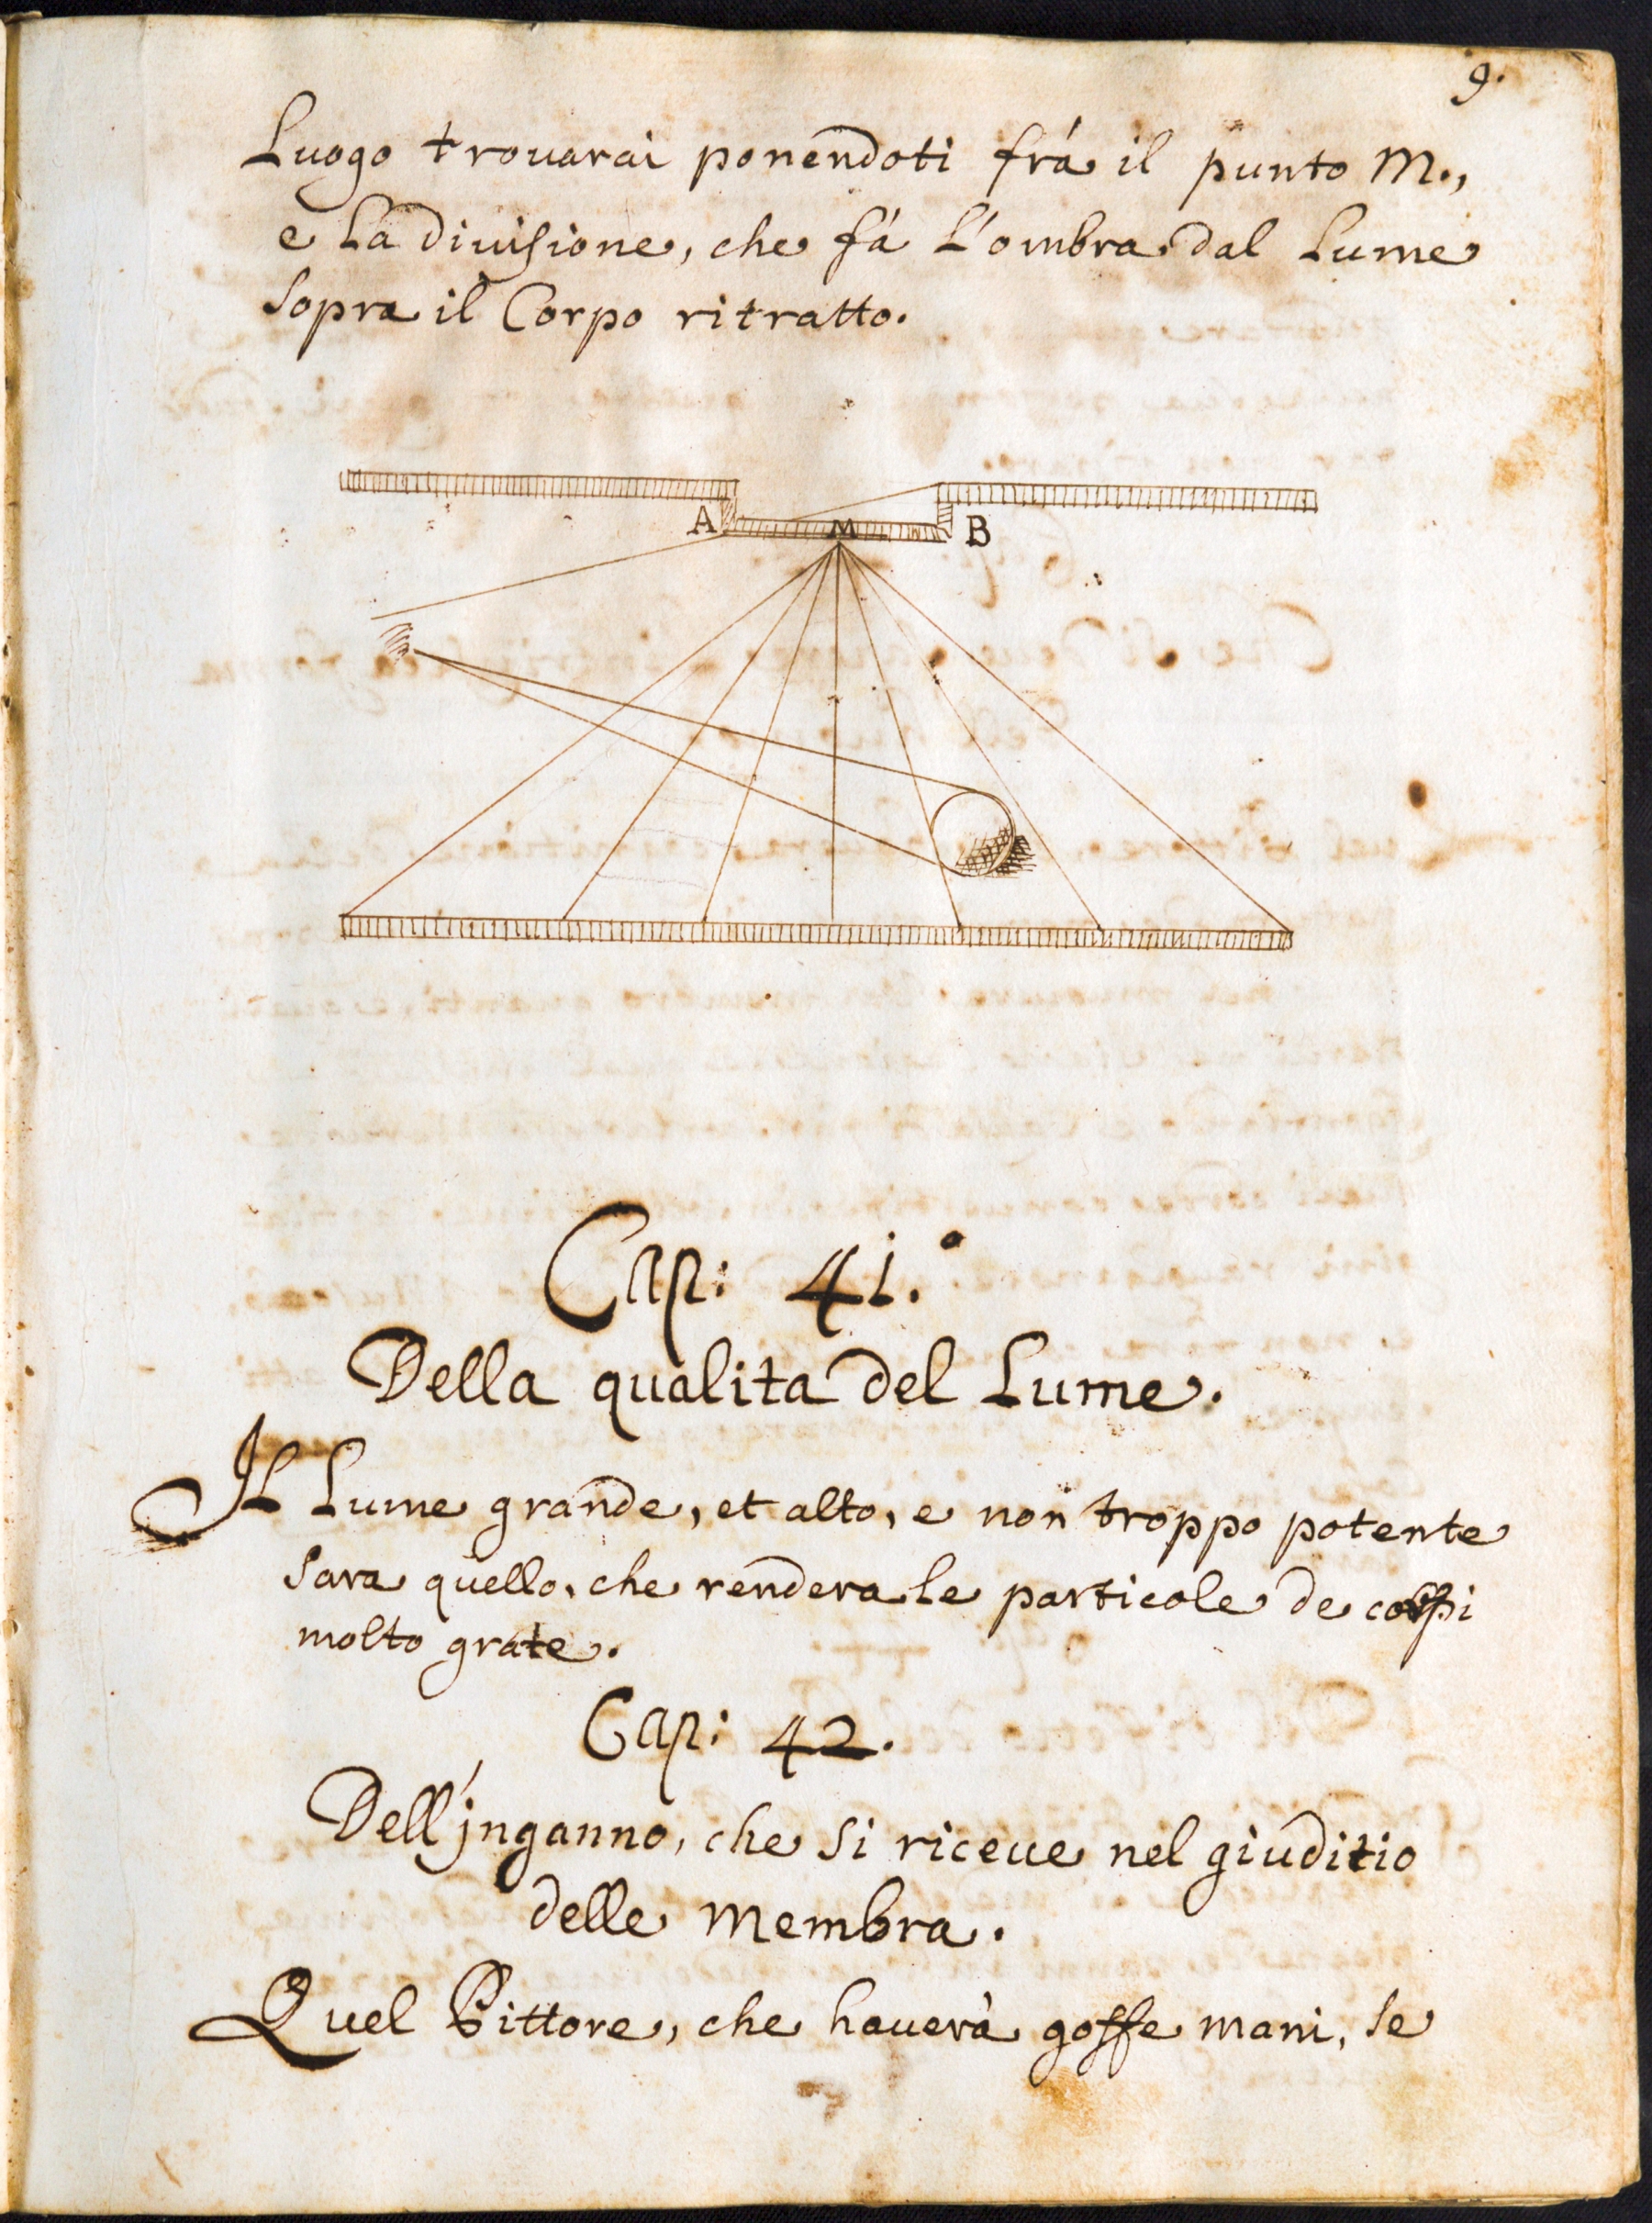 9.
Luogo trouarai ponendoti frà il punto M.,
e la diuisione, che fà l'ombra dal lume
sopra il Corpo ritratto.
A M B
Cap: 41.º
Della qualita del Lume.
Il Lume grande, et alto, e non troppo potente
sara quello, che rendera le particole de corpi
molto grate.
Cap: 42.
Dell'jnganno, che si riceue nel giuditio
delle membra.
Quel Pittore, che hauerà goffe mani, le